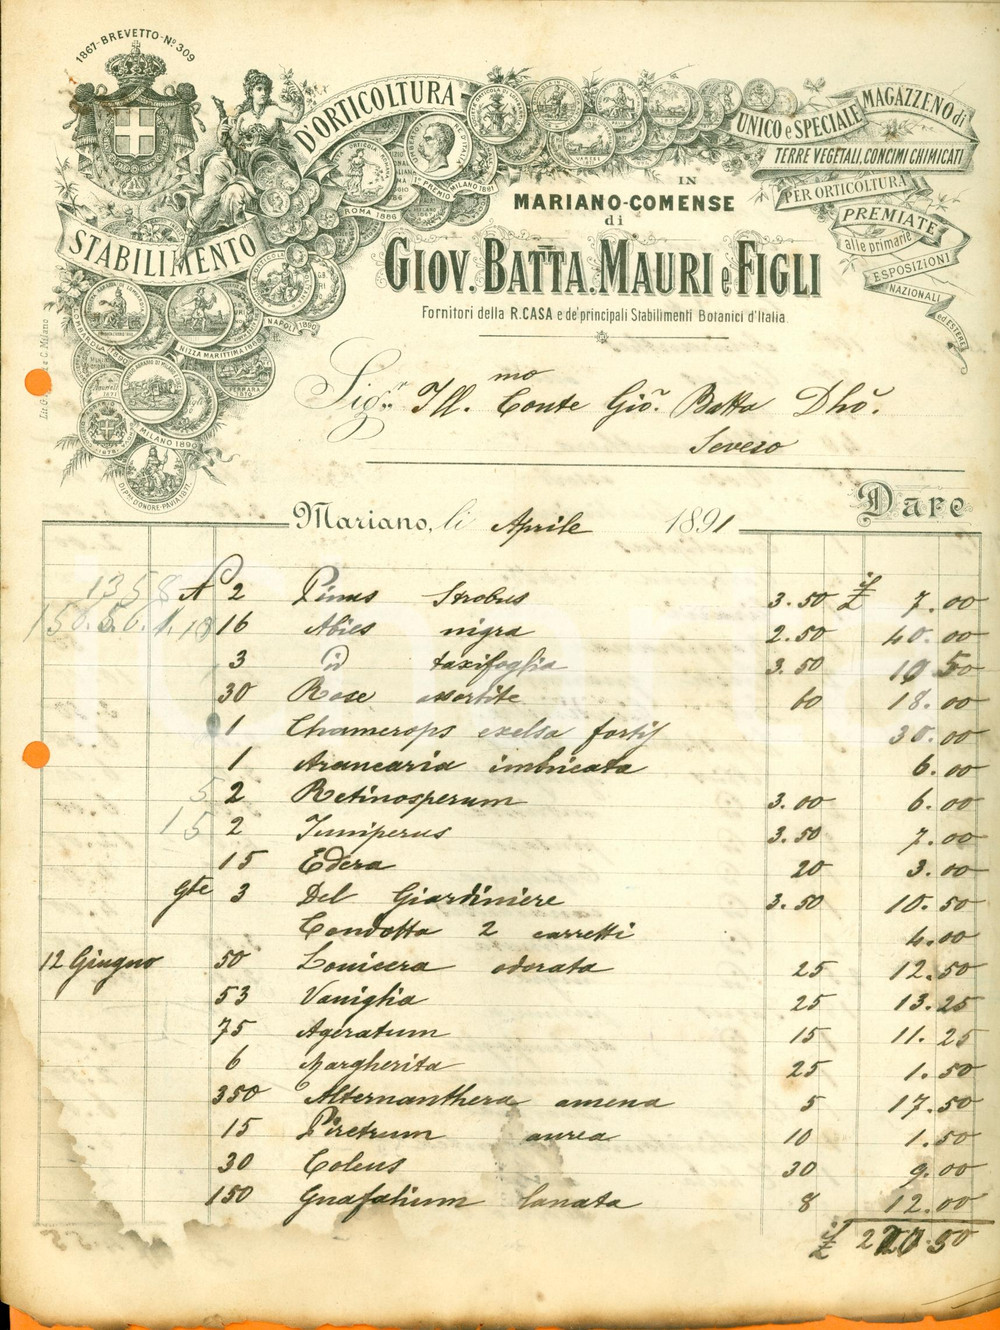 1867-BREVETTO-Nº309
STABILIMENTO D'ORTICOLTURA
UNICO e SPECIALE MAGAZZENO di
TERRE VEGETALI, CONCIMI CHIMICATI
PER ORTICOLTURA
PREMIATE
alle primarie
ESPOSIZIONI
NAZIONALI
ed ESTERE
UMBERTO I RE D'ITALIA
1º PREMIO MILANO 1881
ROMA 1886
NAPOLI 1890
NIZZA MARITTIMA 1868
FERRARA 1870
MILANO 1890
DIPMA D'ONORE-PAVIA 1877
IN
MARIANO-COMENSE
di
GIOV. BATTA. MAURI e FIGLI
Fornitori della R. CASA e de' principali Stabilimenti Botanici d'Italia.
Sigr. Ill.mo Conte Gio. Batta Dho.
Seveso
Mariano, li Aprile 1891 Dare
N 2 Pinus Strobus 3.50 £ 7.00
16 Abies nigra 2.50 40.00
3 id taxifoglia 3.50 10.50
30 Rose assortite 60 18.00
1 Chamerops exelsa fortij 30.00
1 Araucaria imbricata 6.00
2 Retinosperum 3.00 6.00
2 Juniperus 3.50 7.00
15 Edera 20 3.00
gte 3 Del Giardiniere 3.50 10.50
Condotta 2 carretti 4.00
12 Giugno 50 Lonicera odorata 25 12.50
53 Vaniglia 25 13.25
75 Ageratum 15 11.25
6 Margherita 25 1.50
350 Alternanthera amena 5 17.50
15 Piretrum aurea 10 1.50
30 Coleus 30 9.00
150 Gnafalium lanata 8 12.00
£ 220.50